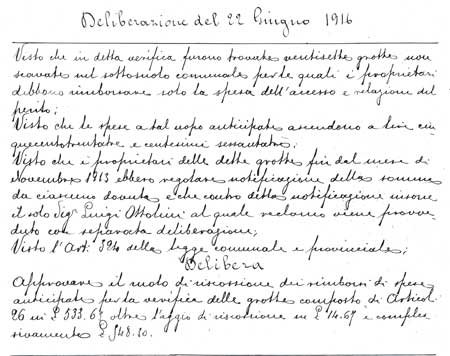 Deliberazione del 22 Giugno 1916
Visto che in detta verifica furono trovate ventisette grotte non
scavate sul sottosuolo comunale per le quali i proprietari
debbono rimborsare solo la spesa dell'accesso e relazione del
perito;
Visto che le spese a tal uopo anticipate ascendono a lire cin
quecentotrentatre e centesimi sessantatre;
Visto che i proprietari delle dette grotte fin dal mese di
Novembre 1913 ebbero regolare notificazione della somma
da ciascuno dovuta e che contro detta notificazione insorse
il solo Sigr Luigi Ottolini al quale reclamo viene provve
duto con separata deliberazione;
Visto l'Art: 324 della legge comunale e provinciale;
Delibera
Approvare il ruolo di riscossione dei rimborsi di spese
anticipate per la verifica delle grotte composto di Articoli
26 in £ 533.67 oltre l'aggio di riscossione in £ 14.67 e comples
sivamente £ 548.30.